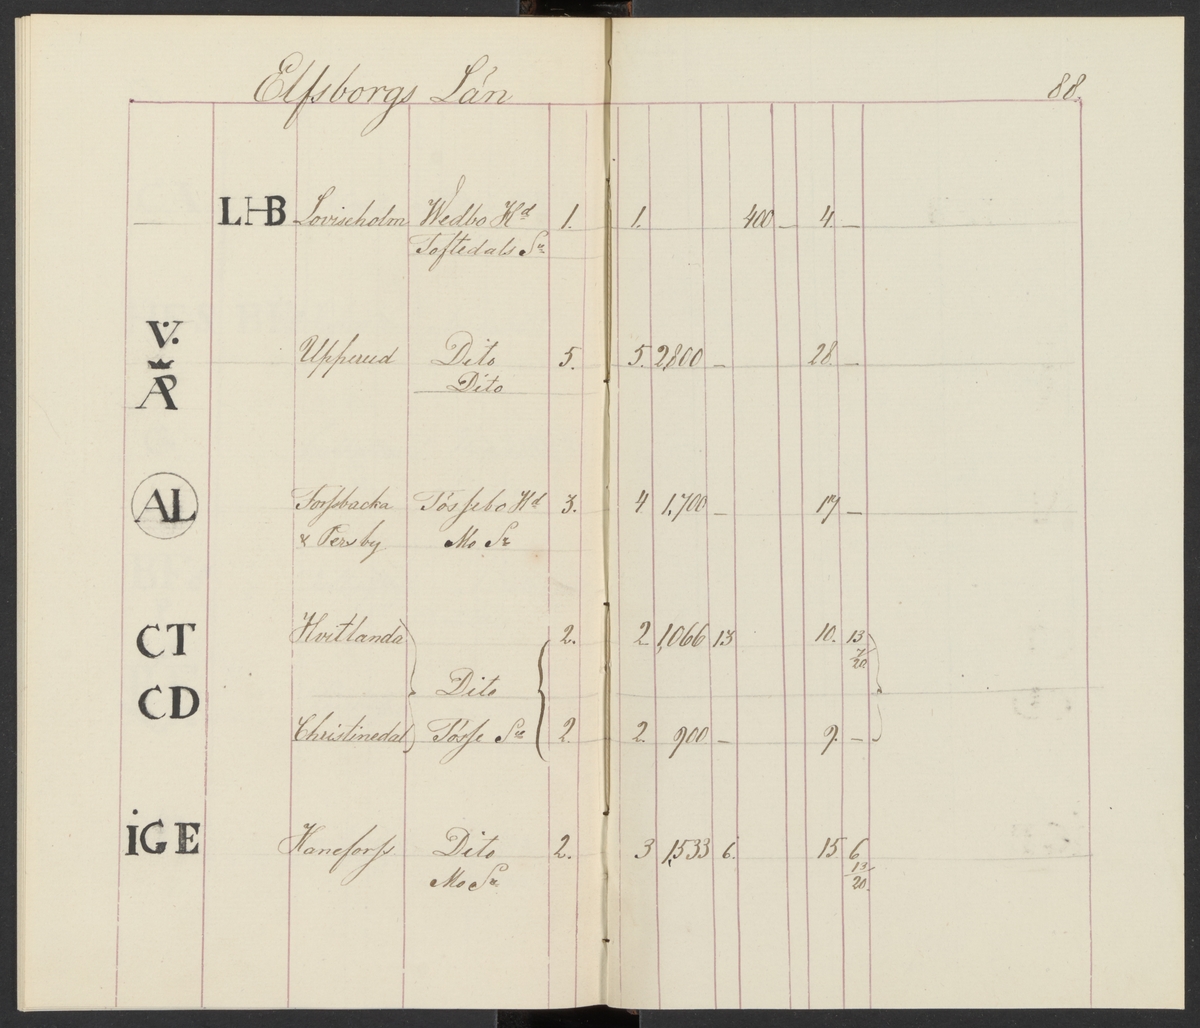 Elfsborgs Län
88.
LHB Loviseholm Wedbo Hd 1. 1. 400 — 4. —
Toftedals Sn
V.
Upperud Dito 5. 5. 2800 — 28. —
AR Dito
AL Forssbacka Tössebo Hd 3. 4 1,700 — 17 —
& Persby Mo Sn
CT Hvitlanda 2. 2 1,066 13 10. 13
7/20
CD Dito
Christinedal Tösse Sn 2. 2. 900 — 9. —
iGE Kaneforss Dito 2. 3 1,533 6. 15 6
Mo Sn 13/20.